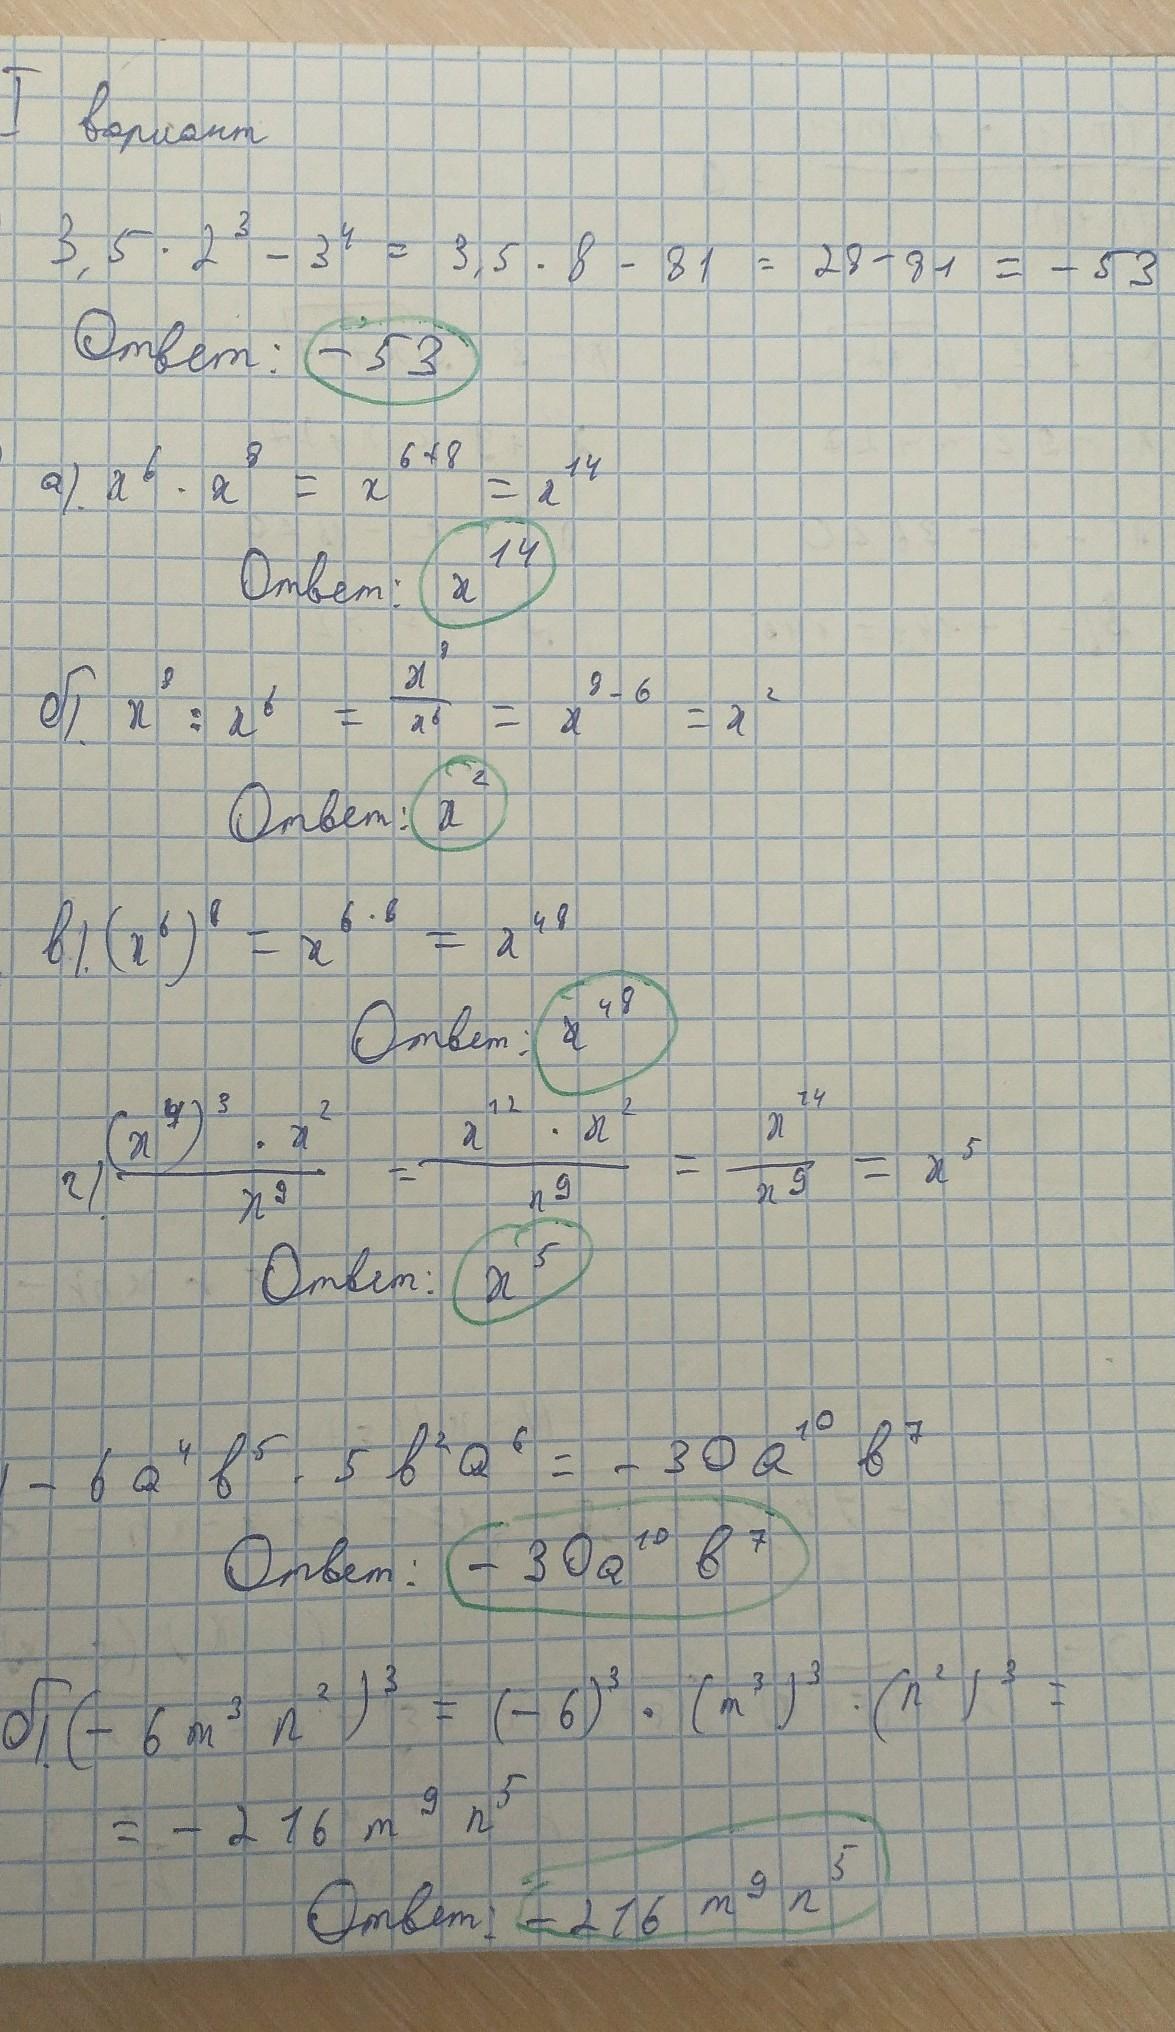 I вариант
3,5 · 2³ - 3⁴ = 3,5 · 8 - 81 = 28 - 81 = - 53
Ответ: - 53
а). x⁶ · x⁸ = x⁶⁺⁸ = x¹⁴
Ответ: x¹⁴
б). x⁸ : x⁶ = x⁸/x⁶ = x⁸⁻⁶ = x²
Ответ: x²
в). (x⁶)⁸ = x⁶·⁸ = x⁴⁸
Ответ: x⁴⁸
г). (x⁴)³ · x² / x⁹ = x¹² · x² / x⁹ = x¹⁴ / x⁹ = x⁵
Ответ: x⁵
) - 6a⁴b⁵ · 5b²a⁶ = - 30a¹⁰b⁷
Ответ: - 30a¹⁰b⁷
б). (- 6m³n²)³ = (- 6)³ · (m³)³ · (n²)³ =
= - 216 m⁹n⁵
Ответ: - 216 m⁹n⁵